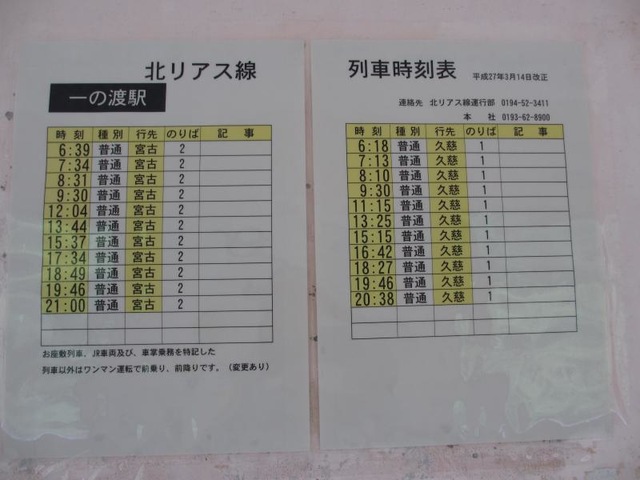 北リアス線
一の渡駅
時 刻 種 別 行先 のりば 記 事
6:39 普通 宮古 2
7:34 普通 宮古 2
8:31 普通 宮古 2
9:30 普通 宮古 2
12:04 普通 宮古 2
13:44 普通 宮古 2
15:37 普通 宮古 2
17:34 普通 宮古 2
18:49 普通 宮古 2
19:46 普通 宮古 2
21:00 普通 宮古 2
お座敷列車、JR車両及び、車掌乗務を特記した
列車以外はワンマン運転で前乗り、前降りです。（変更あり）
列車時刻表 平成27年3月14日改正
連絡先 北リアス線運行部 0194-52-3411
本 社 0193-62-8900
時 刻 種 別 行先 のりば 記 事
6:18 普通 久慈 1
7:13 普通 久慈 1
8:10 普通 久慈 1
9:30 普通 久慈 1
11:15 普通 久慈 1
13:25 普通 久慈 1
15:15 普通 久慈 1
16:42 普通 久慈 1
18:27 普通 久慈 1
19:46 普通 久慈 1
20:38 普通 久慈 1